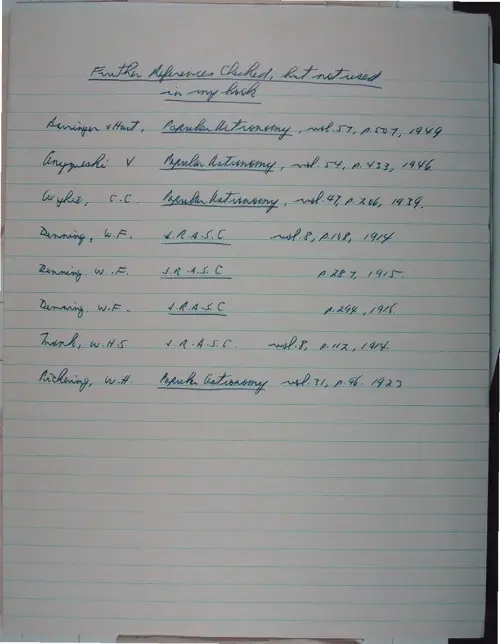 Further References Checked, but not used
in my book
Barringer & Hart, Popular Astronomy, vol. 57, p. 507, 1949
V Popular Astronomy, vol. 54, p. 433, 1946
Wylie, C.C. Popular Astronomy, vol. 47, p. 206, 1939.
Denning, W.F. J.R.A.S.C vol. 8, p. 108, 1914
Denning W.F. J.R.A.S.C p. 287, 1915.
Denning W.F. J.R.A.S.C p. 294, 1915
W.H.S J.R.A.S.C. vol. 8, p. 112, 1914.
Pickering, W.H. Popular Astronomy vol. 31, p. 96. 1923